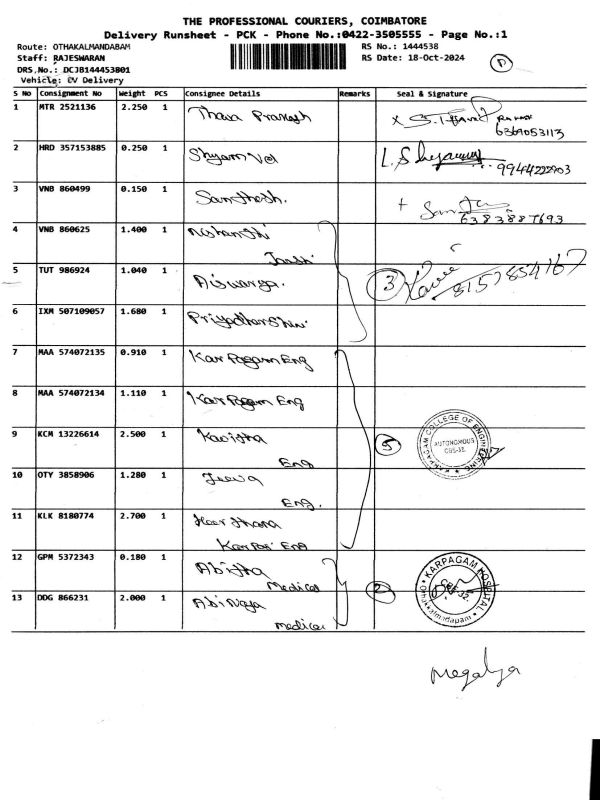 THE PROFESSIONAL COURIERS, COIMBATORE
Delivery Runsheet - PCK - Phone No.:0422-3505555 - Page No.:1
Route: OTHAKALMANDABAM
RS No.: 1444538
Staff: RAJESWARAN
RS Date: 18-Oct-2024
1
DRS,No.: DCJB144453801
Vehicle: EV Delivery
S No Consignment No Weight PCS Consignee Details Remarks Seal & Signature
1 MTR 2521136 2.250 1 Thara Prakash
6369053113
2 HRD 357153885 0.250 1 Shyam Vel
9944222903
3 VNB 860499 0.150 1 Santhosh.
6383887693
4 VNB 860625 1.400 1 Nishanthi
5 TUT 986924 1.040 1 Aiswarya. 3 8157854167
6 IXM 507109057 1.680 1 Priyadharshini
7 MAA 574072135 0.910 1 Karpagam Eng
8 MAA 574072134 1.110 1 Karpagam Eng
9 KCM 13226614 2.500 1 Kavitha
Eng
5
KARPAGAM COLLEGE OF ENGINEERING
AUTONOMOUS
CBE-32.
10 OTY 3858906 1.280 1 Jeeva
Eng.
11 KLK 8180774 2.700 1 Keerthana
Eng
12 GPM 5372343 0.180 1 Abitha
Medical
2
KARPAGAM HOSPITAL
CBE-32.
Othakkalmadapam
13 DDG 866231 2.000 1 Abinaya
medical